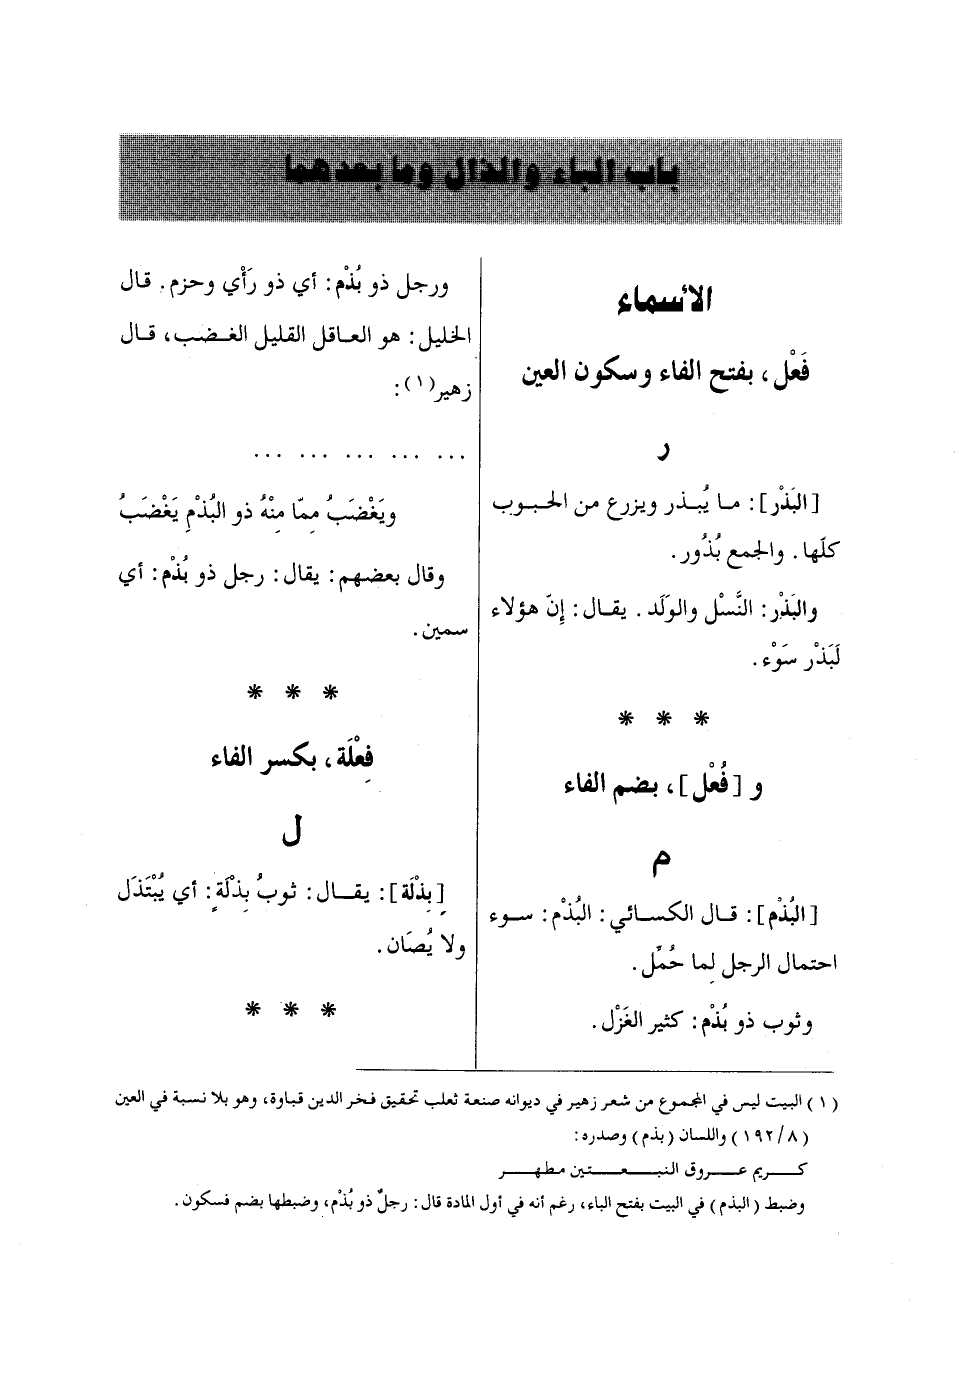 باب الباء والذال وما بعدهما
الأسماء
فَعْل، بفتح الفاء وسكون العين
ر
[البَذْر]: ما يُبذر ويزرع من الحبوب
كلّها. والجمع بُذُور.
والبَذْر: النَّسْل والوَلَد. يقال: إنّ هؤلاء
لَبَذْر سَوْء.
* * *
و [فُعْل]، بضم الفاء
م
[البُذْم]: قال الكسائي: البُذْم: سوء
احتمال الرجل لِما حُمِّل.
وثوب ذو بُذْم: كثير الغَزْل.
ورجل ذو بُذْم: أي ذو رَأْي وحزم. قال
الخليل: هو العاقل القليل الغضب، قال
زهير(١):
... ... ... ... ...
ويَغْضَبُ مِمّا مِنْهُ ذو البُذْمِ يَغْضَبُ
وقال بعضهم: يقال: رجل ذو بُذْم: أي
سمين.
* * *
فِعْلَة، بكسر الفاء
ل
[بِذْلَة]: يقال: ثوبُ بِذْلَةٍ: أي يُبْتَذَل
ولا يُصَان.
* * *
(١) البيت ليس في المجموع من شعر زهير في ديوانه صنعة ثعلب تحقيق فخر الدين قباوة، وهو بلا نسبة في العين
(٨/١٩٢) واللسان (بذم) وصدره:
كريم عروق النبعتين مطهر
وضبط (البذم) في البيت بفتح الباء، رغم أنه في أول المادة قال: رجلٌ ذو بُذْم، وضبطها بضم فسكون.